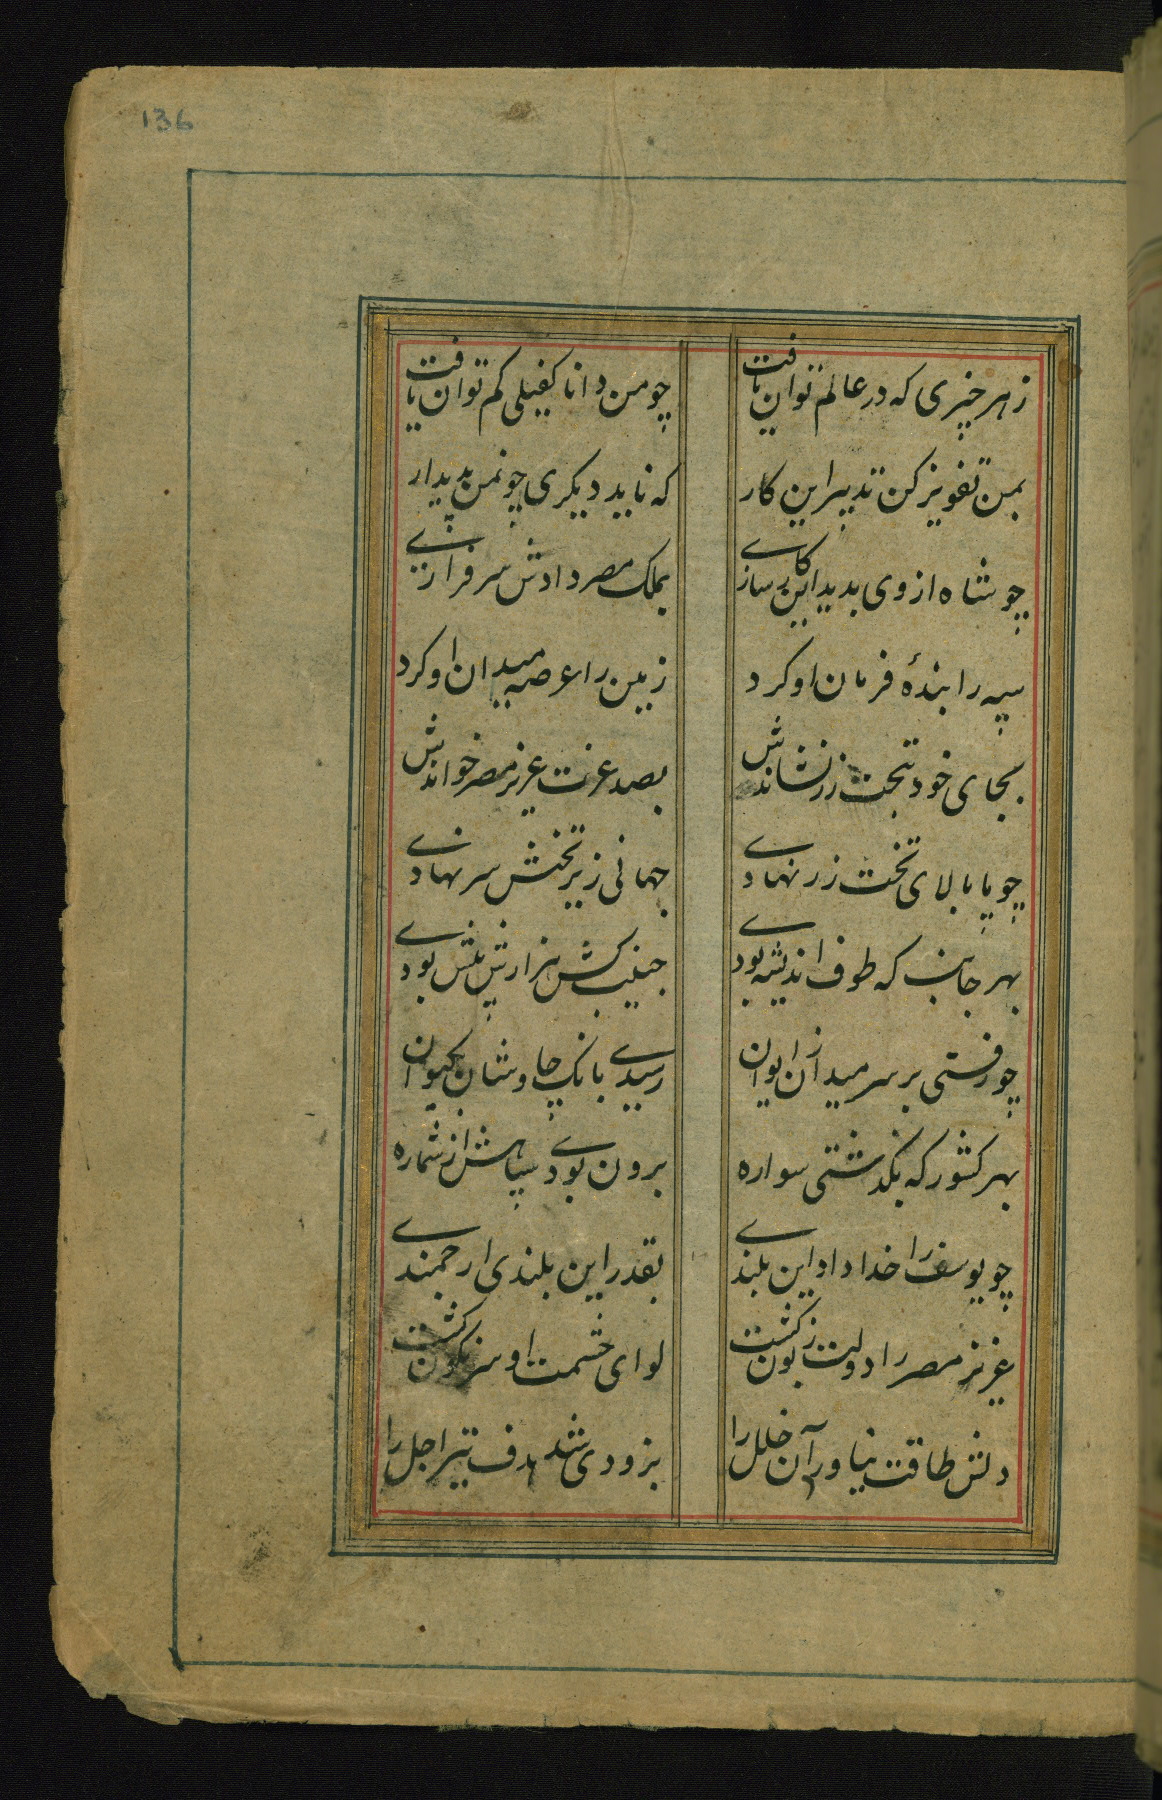 136
زهر چیزی که در عالم توان یافت چو من دانا کفیلی کم توان یافت
بمن تفویز کن تدبیر این کار که ناید دیکری چون من پدیدار
چو شاه از وی بدید این کارسازی بملک مصر دادش سرفرازی
سپه را بندۀ فرمان او کرد زمین را عرصه میدان او کرد
بجای خود بتخت زر نشاندش بصد عزت عزیز مصر خواندش
چو پا بالای تخت زر نهادی جهانی زیر تختش سر نهادی
بهر جانب که طوف اندیشه بودی جنیبت کش هزارش پیش بودی
چو رفتی بر سر میدان از ایوان رسیدی بانک چاوشان بکیوان
بهر کشور که بگذشتی سواره برون بودی سپاهش از شماره
چو یوسف را خدا داد این بلندی بقدر این بلندی ارجمندی
عزیز مصر را دولت زبون کشت لوای حشمت او سرنکون کشت
دلش طاقت نیاورد آن خلل را بزودی شد هدف تیر اجل را